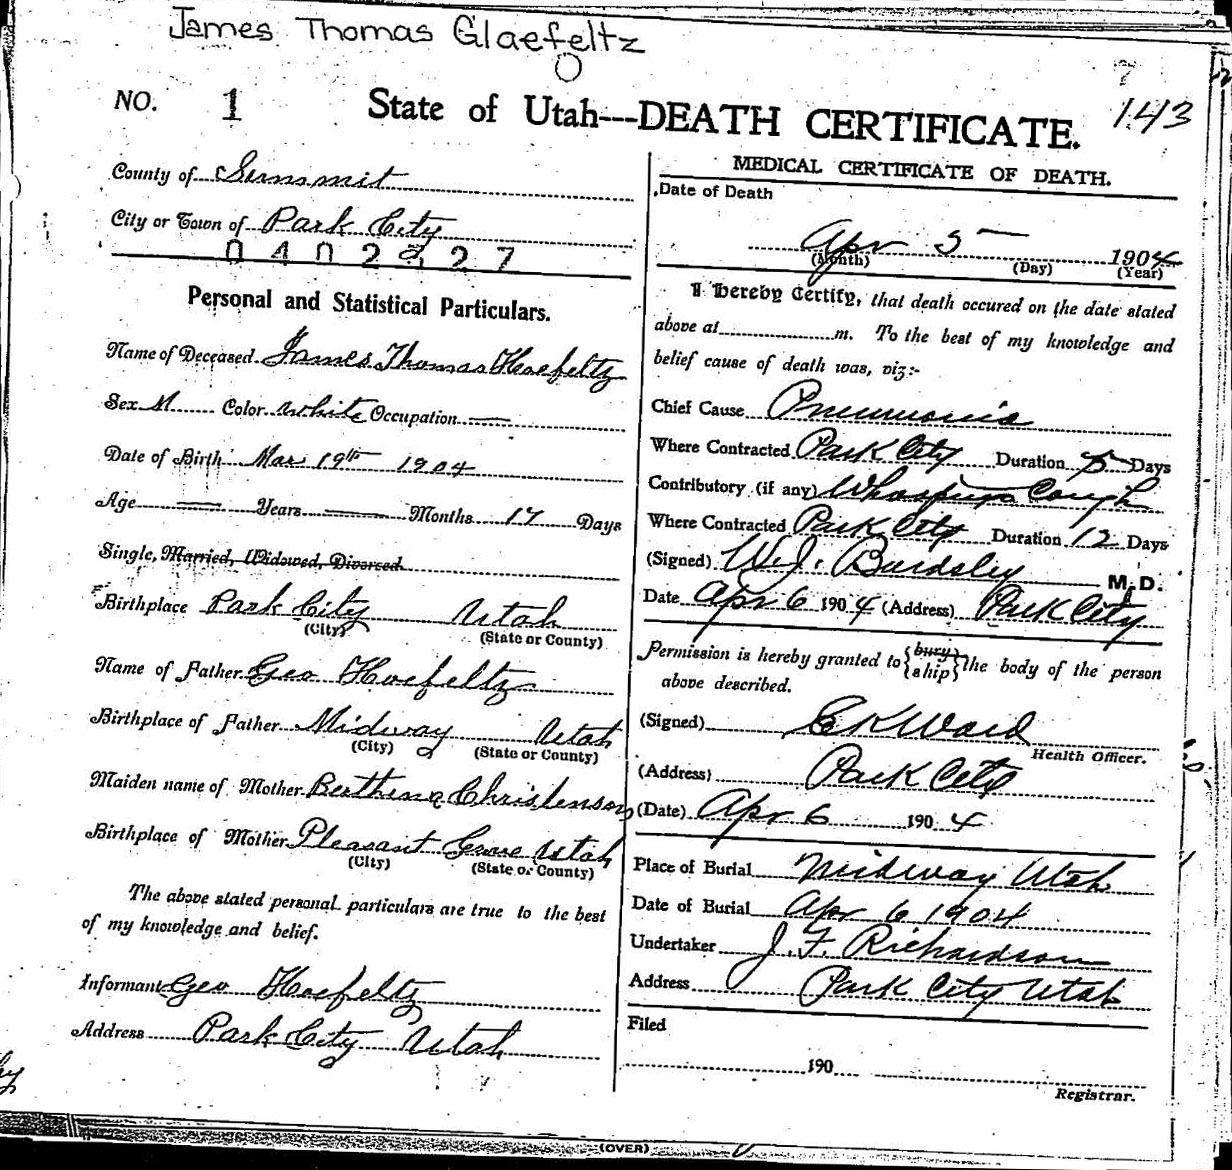 James Thomas Glaefeltz
O
NO. 1 State of Utah---DEATH CERTIFICATE. 143
County of Summit
City or Town of Park City
0402327
Personal and Statistical Particulars.
Name of Deceased James Thomas Hoefeltz
Sex M Color White Occupation —
Date of Birth Mar 19th 1904
Age — Years — Months 17 Days
Single, Married, Widowed, Divorced
Birthplace Park City Utah
(City) (State or County)
Name of Father Geo Hoefeltz
Birthplace of Father Midway Utah
(City) (State or County)
Maiden name of Mother Berthina Christenson
Birthplace of Mother Pleasant Grove Utah
(City) (State or County)
The above stated personal particulars are true to the best
of my knowledge and belief.
Informant Geo Hoefeltz
Address Park City Utah
MEDICAL CERTIFICATE OF DEATH.
Date of Death
Apr 5 1904
(Month) (Day) (Year)
I hereby Certify, that death occured on the date stated
above at m. To the best of my knowledge and
belief cause of death was, viz:-
Chief Cause Pneumonia
Where Contracted Park City Duration 5 Days
Contributory (if any) Whooping Cough
Where Contracted Park City Duration 12 Days
(Signed) W.J. Bardsley M.D.
Date Apr 6 1904 (Address) Park City
Permission is hereby granted to {bury
ship} the body of the person
above described.
(Signed) E K Ward
Health Officer.
(Address) Park City
(Date) Apr 6 1904
Place of Burial Midway Utah
Date of Burial Apr 6 1904
Undertaker J. F. Richardson
Address Park City Utah
Filed
190
Registrar.
(OVER)